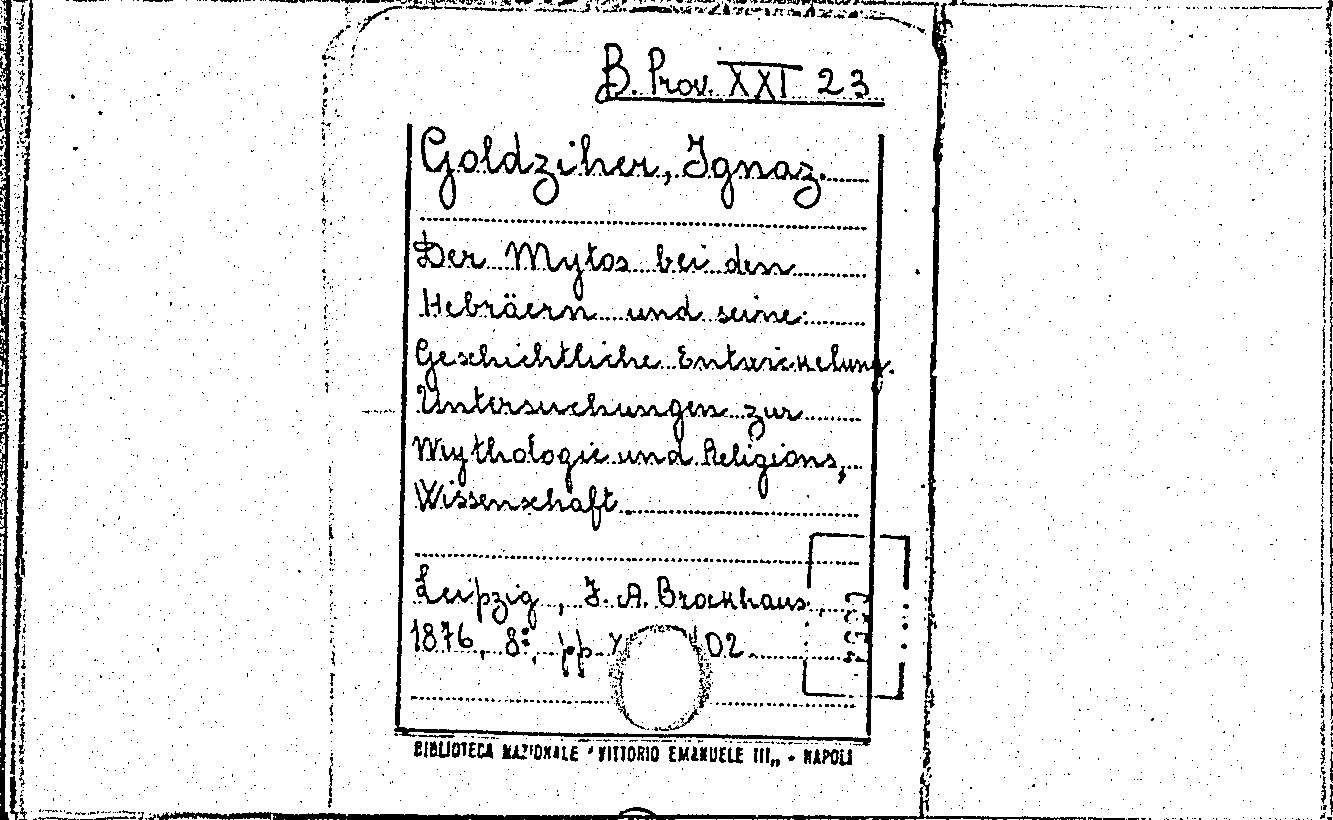 B. Prov. XXI 23
Goldziher, Ignaz.
Der Mytos bei den
Hebräern und seine
Geschichtliche Entwickelung.
Untersuchungen zur
Mythologie und Religions,
Wissenschaft
Leipzig, F. A. Brockhaus,
1876, 8º, pp. X 02
BIBLIOTECA NAZIONALE "VITTORIO EMANUELE III„ - NAPOLI